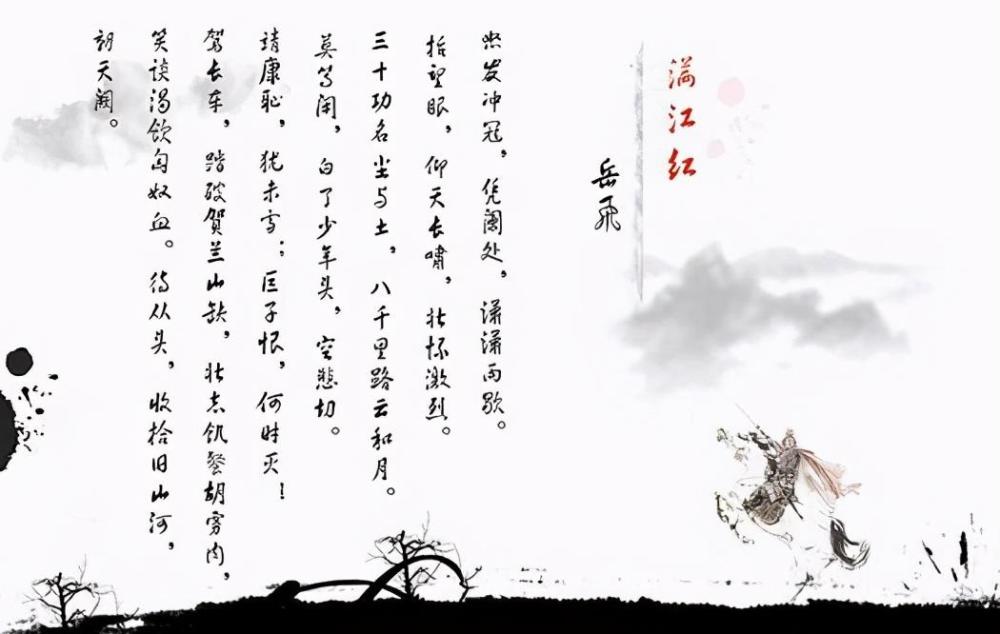 满江红
岳飞
怒发冲冠，凭阑处，潇潇雨歇。
抬望眼，仰天长啸，壮怀激烈。
三十功名尘与土，八千里路云和月。
莫等闲，白了少年头，空悲切。
靖康耻，犹未雪；臣子恨，何时灭！
驾长车，踏破贺兰山缺，壮志饥餐胡虏肉，
笑谈渴饮匈奴血。待从头，收拾旧山河，
朝天阙。